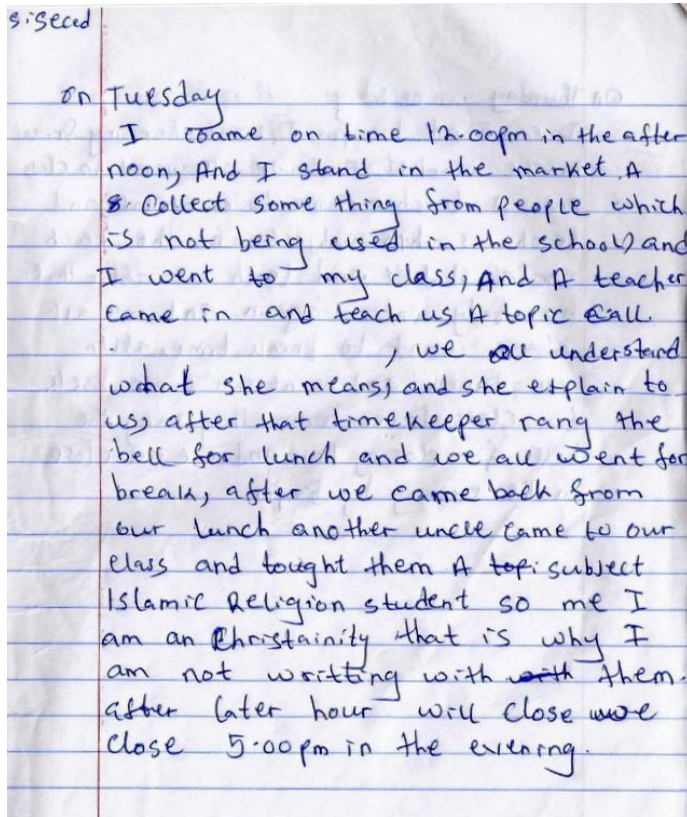 siseced
on Tuesday
I coame on time 12.00pm in the after
noon, And I stand in the market A
& Collect some thing from people which
is not being used in the school, and
I went to my class, And A teacher
came in and teach us A topic Call.
, we all understand
what she means, and she explain to
us, after that timekeeper rang the
bell for lunch and we all went for
break, after we came back from
our lunch another uncle came to our
class and tought them A topi subject
Islamic Religion student so me I
am an Christainity that is why I
am not writting with with them.
after later hour will close we
close 5:00pm in the evening.